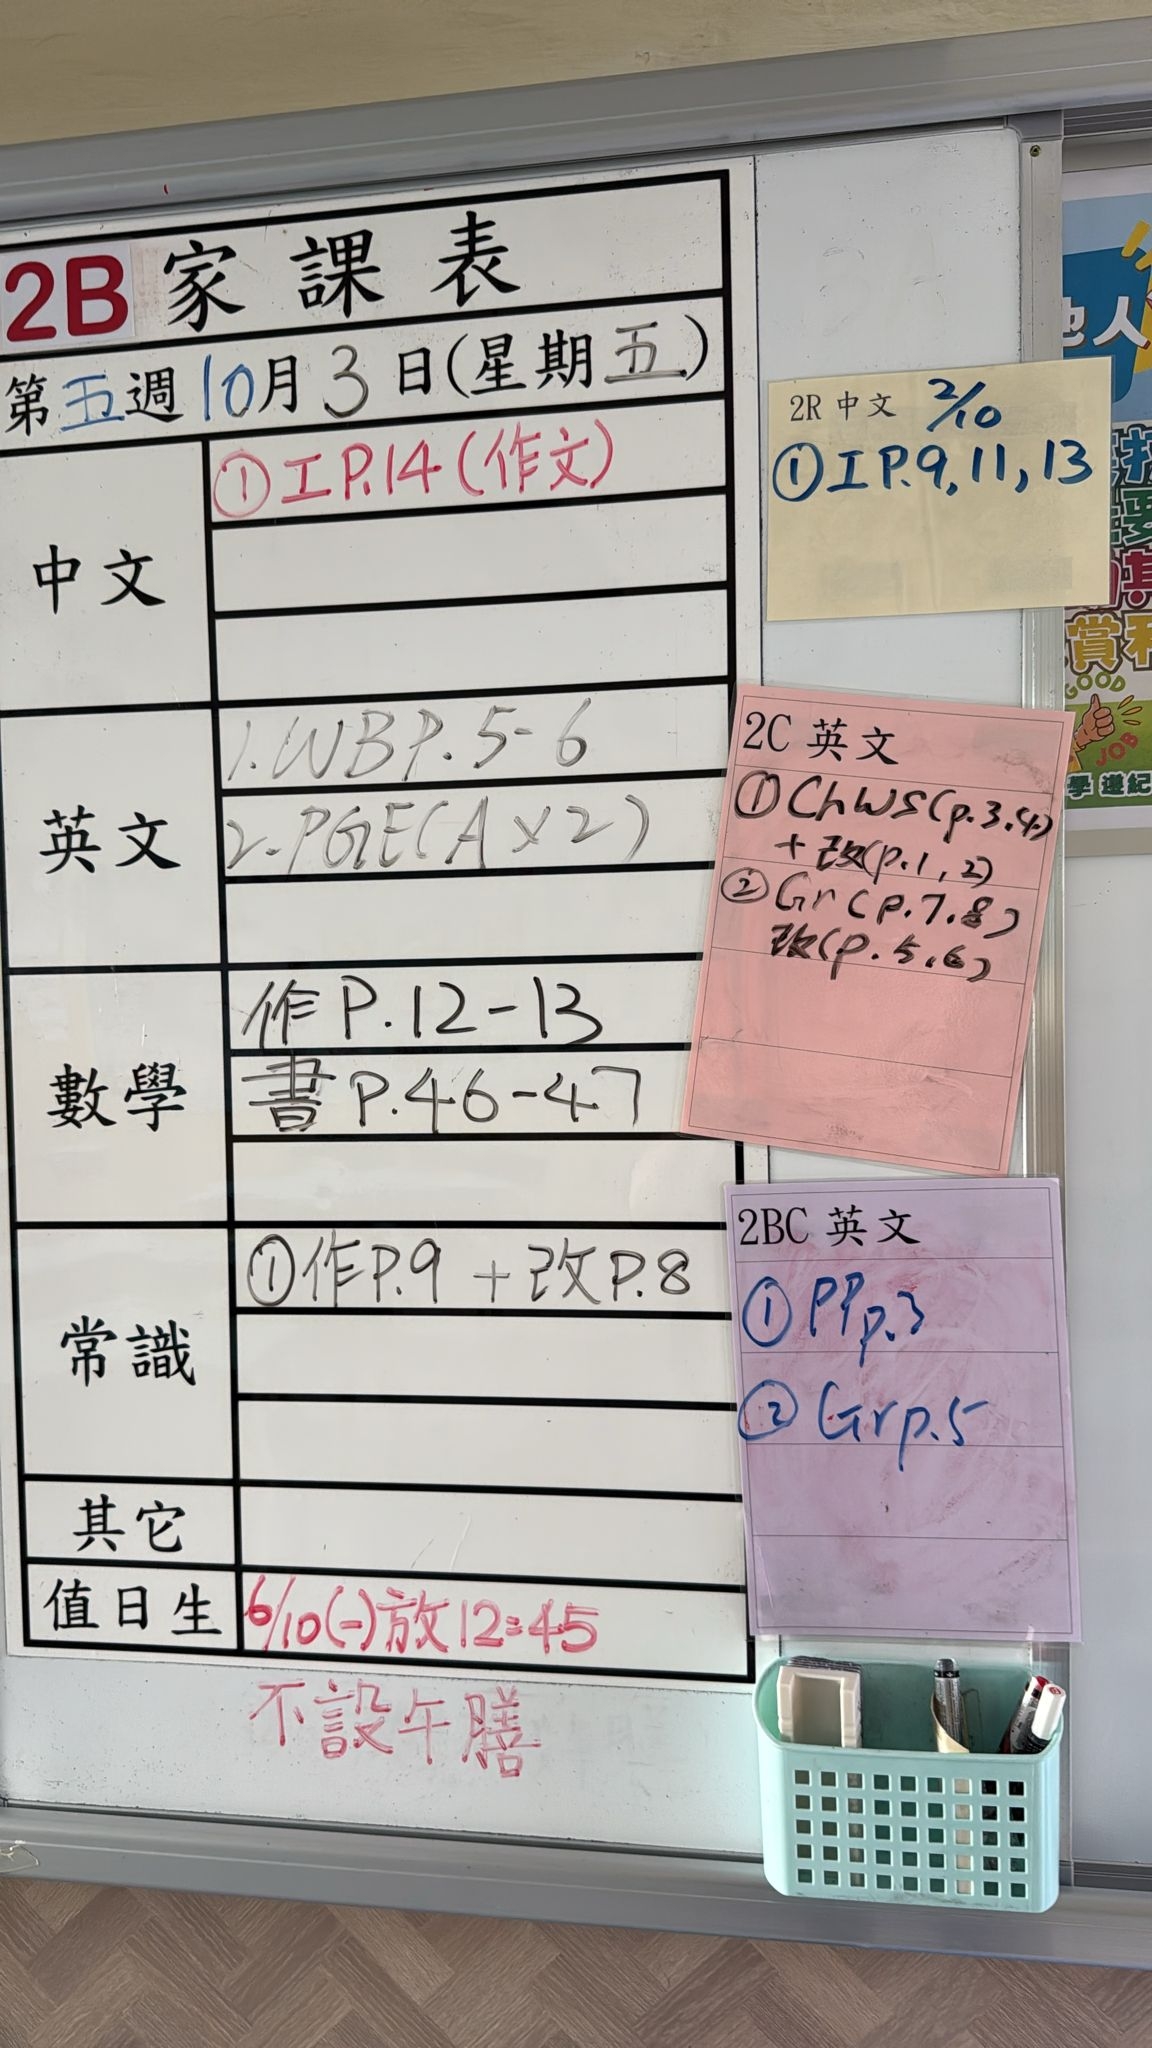 2B 家課表
第五週10月3日(星期五)
中文
①工P.14(作文)
英文
1.WBP.5-6
2.PGE(A×2)
數學
作P.12-13
書P.46-47
常識
①作P.9 +改P.8
其它
值日生
6/10(一)放12:45
不設午膳
2R 中文 2/10
①工P.9,11,13
2C 英文
①ChWS(p.3.4)
+改(p.1,2)
②Gr(p.7.8)
改(p.5.6)
2BC 英文
①PPp.3
②Grp.5
他人
GOOD
JOB